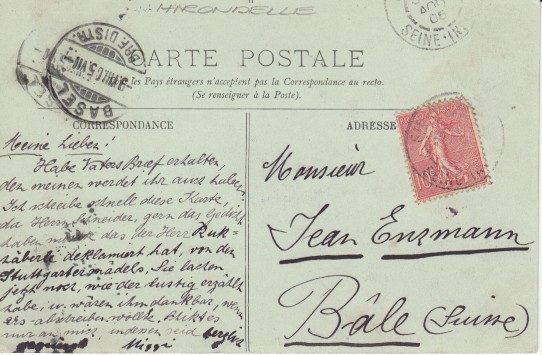 HIRONDELLE
CARTE POSTALE
les Pays étrangers n'acceptent pas la Correspondance au recto.
(Se renseigner à la Poste).
BASEL
BRF. DISTR.
AOU
05
SEINE-IN
CORRESPONDANCE
ADRESSE
10
Meine Lieben!
Habe Vaters Brief erhalten,
den meinen werdet ihr auch haben.
Ich schreibe schnell diese Karte,
da Herr Schneider, gern das Gedicht
haben das der Herr Ruk-
häberle deklamiert hat, von den
Stuttgartermädels, Sie lachen
jetzt noch, wie der lustig erzählt
habe, u. wären ihm dankbar, wenn
ers abschreiben wollt.
nur an mich, indessen seid herzlich
Miggi
Monsieur
Jean Enzmann
Bâle (Suisse)